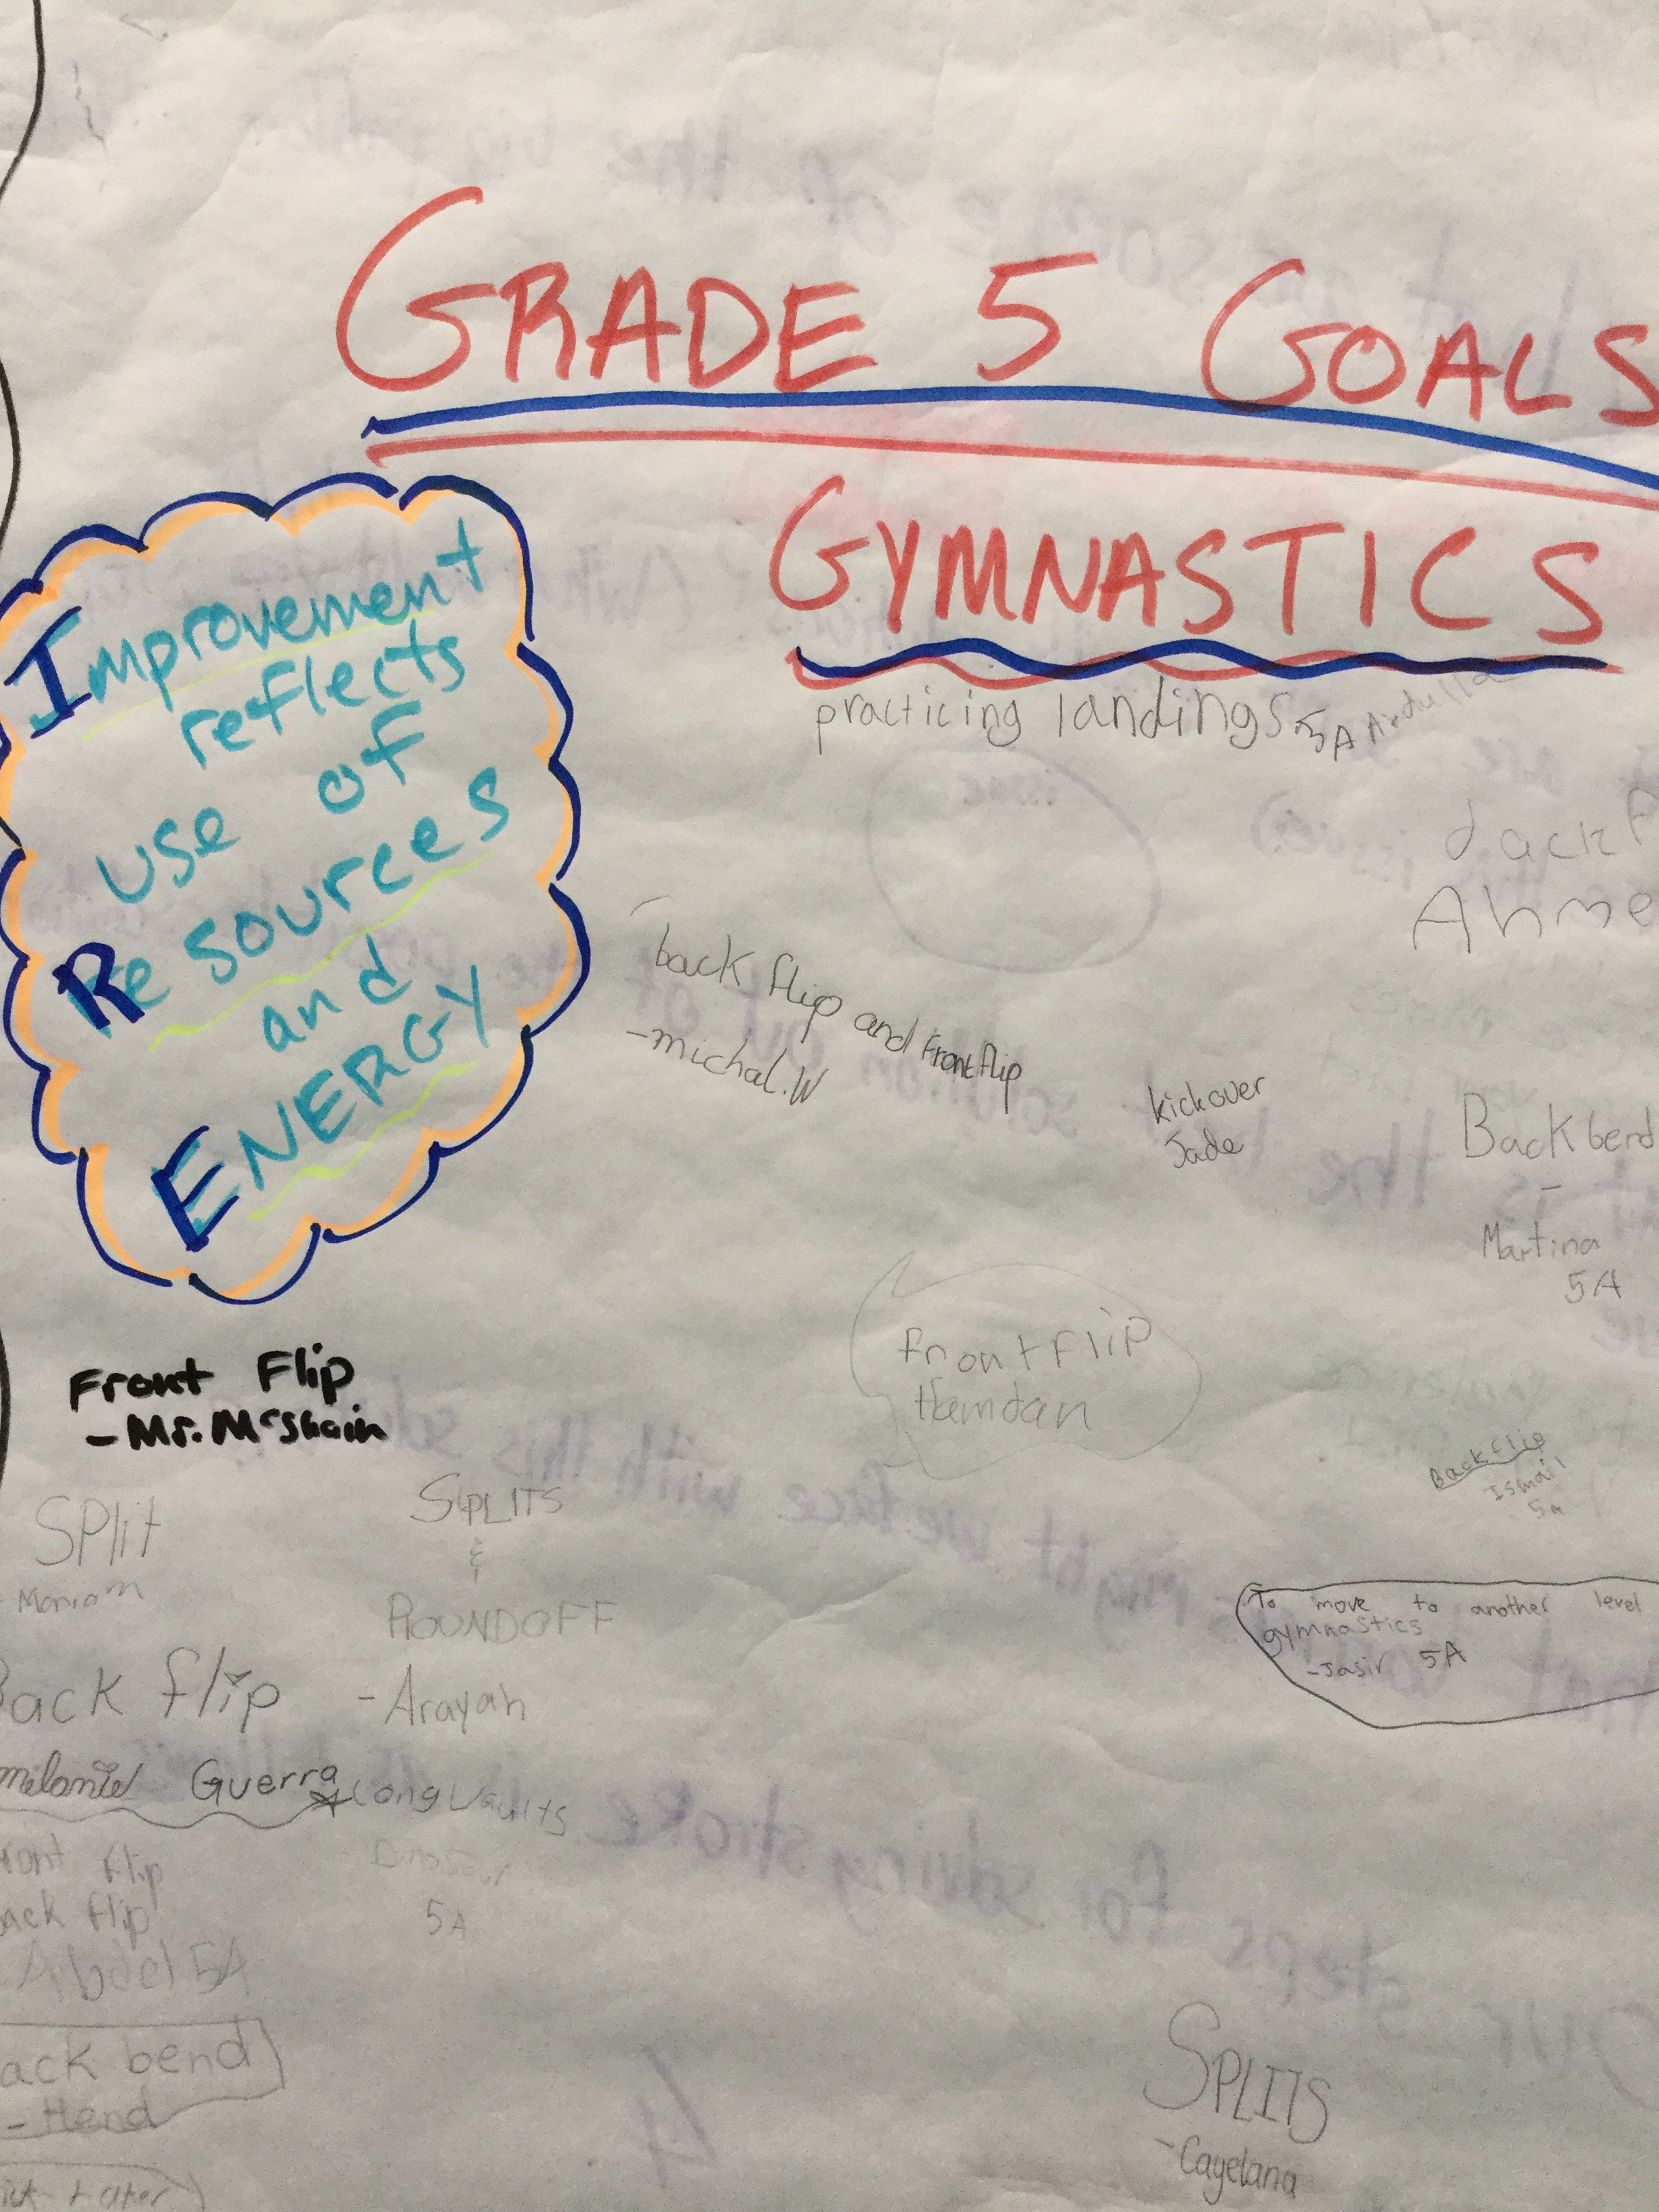 GRADE 5 GOALS
GYMNASTICS
Improvement
reflects
use of
Resources
and
ENERGY
practicing landings 5A
Ahme
back flip and Front flip
-michal.W
kickover
Jade
Back bend
-
Martina
5A
frontflip
Hamdan
Front Flip
-Mr. McShain
Backflip
Ismail
5a
SPlit
Mariam
SPLITS
&
ROUNDOFF
-Arayah
To move to another level
gymnastics
-Jasir 5A
Back flip
melanie Guerra
Long Vaults
5A
ront flip
ack flip
Abdel 5A
ack bend
-Hend
SPLITS
-Cayetana